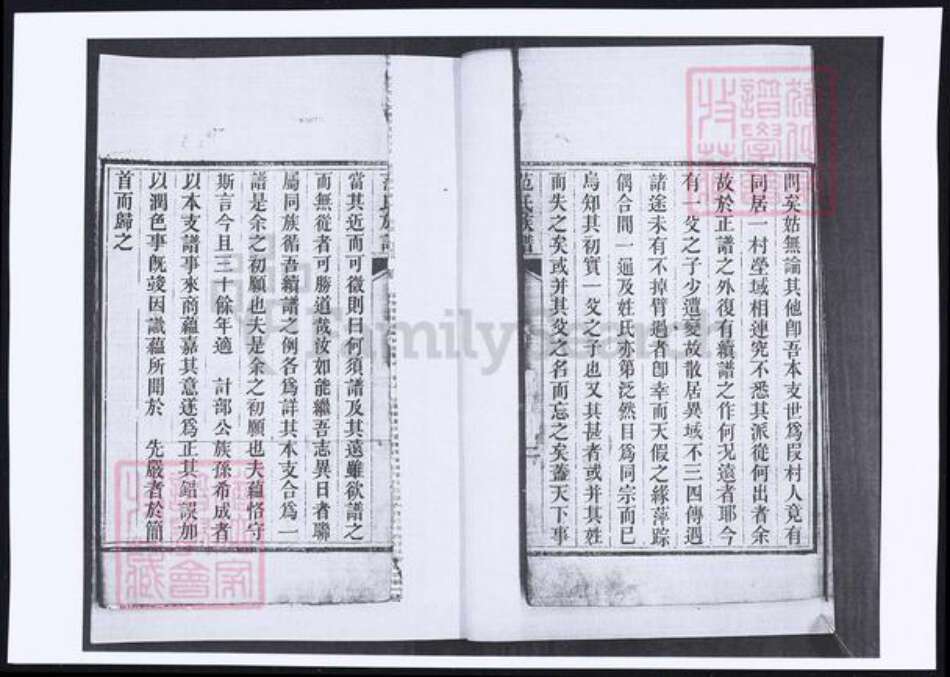 問矣姑無論其他卽吾本支世爲段村人竟有
同居一村塋域相連究不悉其派從何出者余
故於正譜之外復有續譜之作何况遠者耶今
有一父之子少遭變故散居異域不三四傳遇
諸途未有不掉臂過者卽幸而天假之緣萍踪
偶合間一通及姓氏亦第泛然目爲同宗而已
烏知其初實一父之子也又其甚者或并其姓
而失之矣或并其父之名而忘之矣蓋天下事
范氏族譜
當其近而可徵則曰何須譜及其遠雖欲譜之
而無從者可勝道哉汝如能繼吾志異日者聯
屬同族循吾續譜之例各爲詳其本支合爲一
譜是余之初願也夫是余之初願也夫蘊恪守
斯言今且三十餘年適 計部公族孫希成者
以本支譜事來商蘊嘉其意遂爲正其錯誤加
以潤色事旣竣因識蘊所聞於 先嚴者於簡
首而歸之
FamilySearch